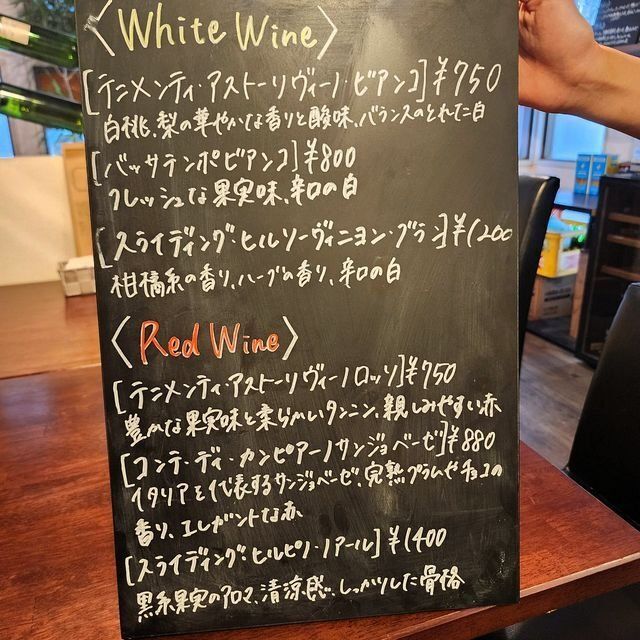 〈White Wine〉
[テニメンティ・アストーリヴィーノ・ビアンコ]¥750
白桃、梨の華やかな香りと酸味、バランスのとれた白
[バッサテンポビアンコ]¥800
フレッシュな果実味、辛口の白
[スライディング・ヒルソーヴィニヨン・ブラン]¥1200
柑橘系の香り、ハーブの香り、辛口の白
〈Red Wine〉
[テニメンティ・アストーリヴィーノロッソ]¥750
豊かな果実味と柔らかいタンニン、親しみやすい赤
[コンテ・ディ・カンピアーノサンジョベーゼ]¥880
イタリアを代表するサンジョベーゼ、完熟プラムやチョコの
香り、エレガントな赤
[スライディング・ヒルピノ・ノアール]¥1400
黒系果実のアロマ、清涼感、しっかりした骨格